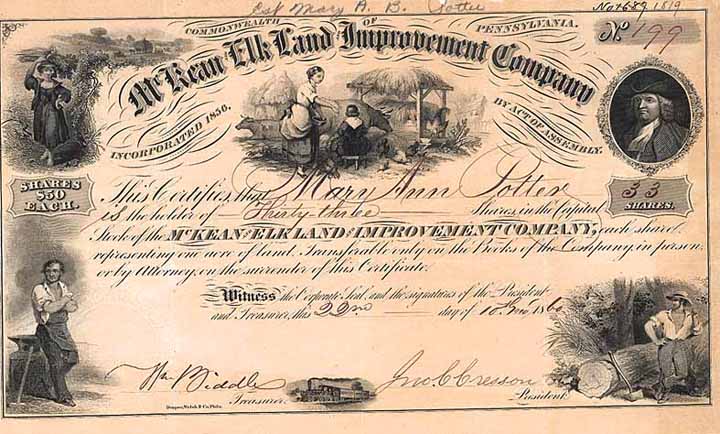 Est Mary A. B. Potter
No 1819
COMMONWEALTH OF PENNSYLVANIA.
No 199
McKean Elk Land Improvement Company
INCORPORATED 1856. BY ACT OF ASSEMBLY.
SHARES
$50
EACH.
33
SHARES.
This Certifies, that Mary Ann Potter
is the holder of Thirty-three Shares, in the Capital
Stock of the McKEAN & ELK LAND & IMPROVEMENT COMPANY, each share
representing one acre of land. Transferable only on the Books of the Company, in person
or by Attorney, on the surrender of this Certificate.
Witness the Corporate Seal, and the signatures of the President
and Treasurer, this 22nd day of 10 mo 186
Wm Biddle
Treasurer.
Jno C Cresson
President.